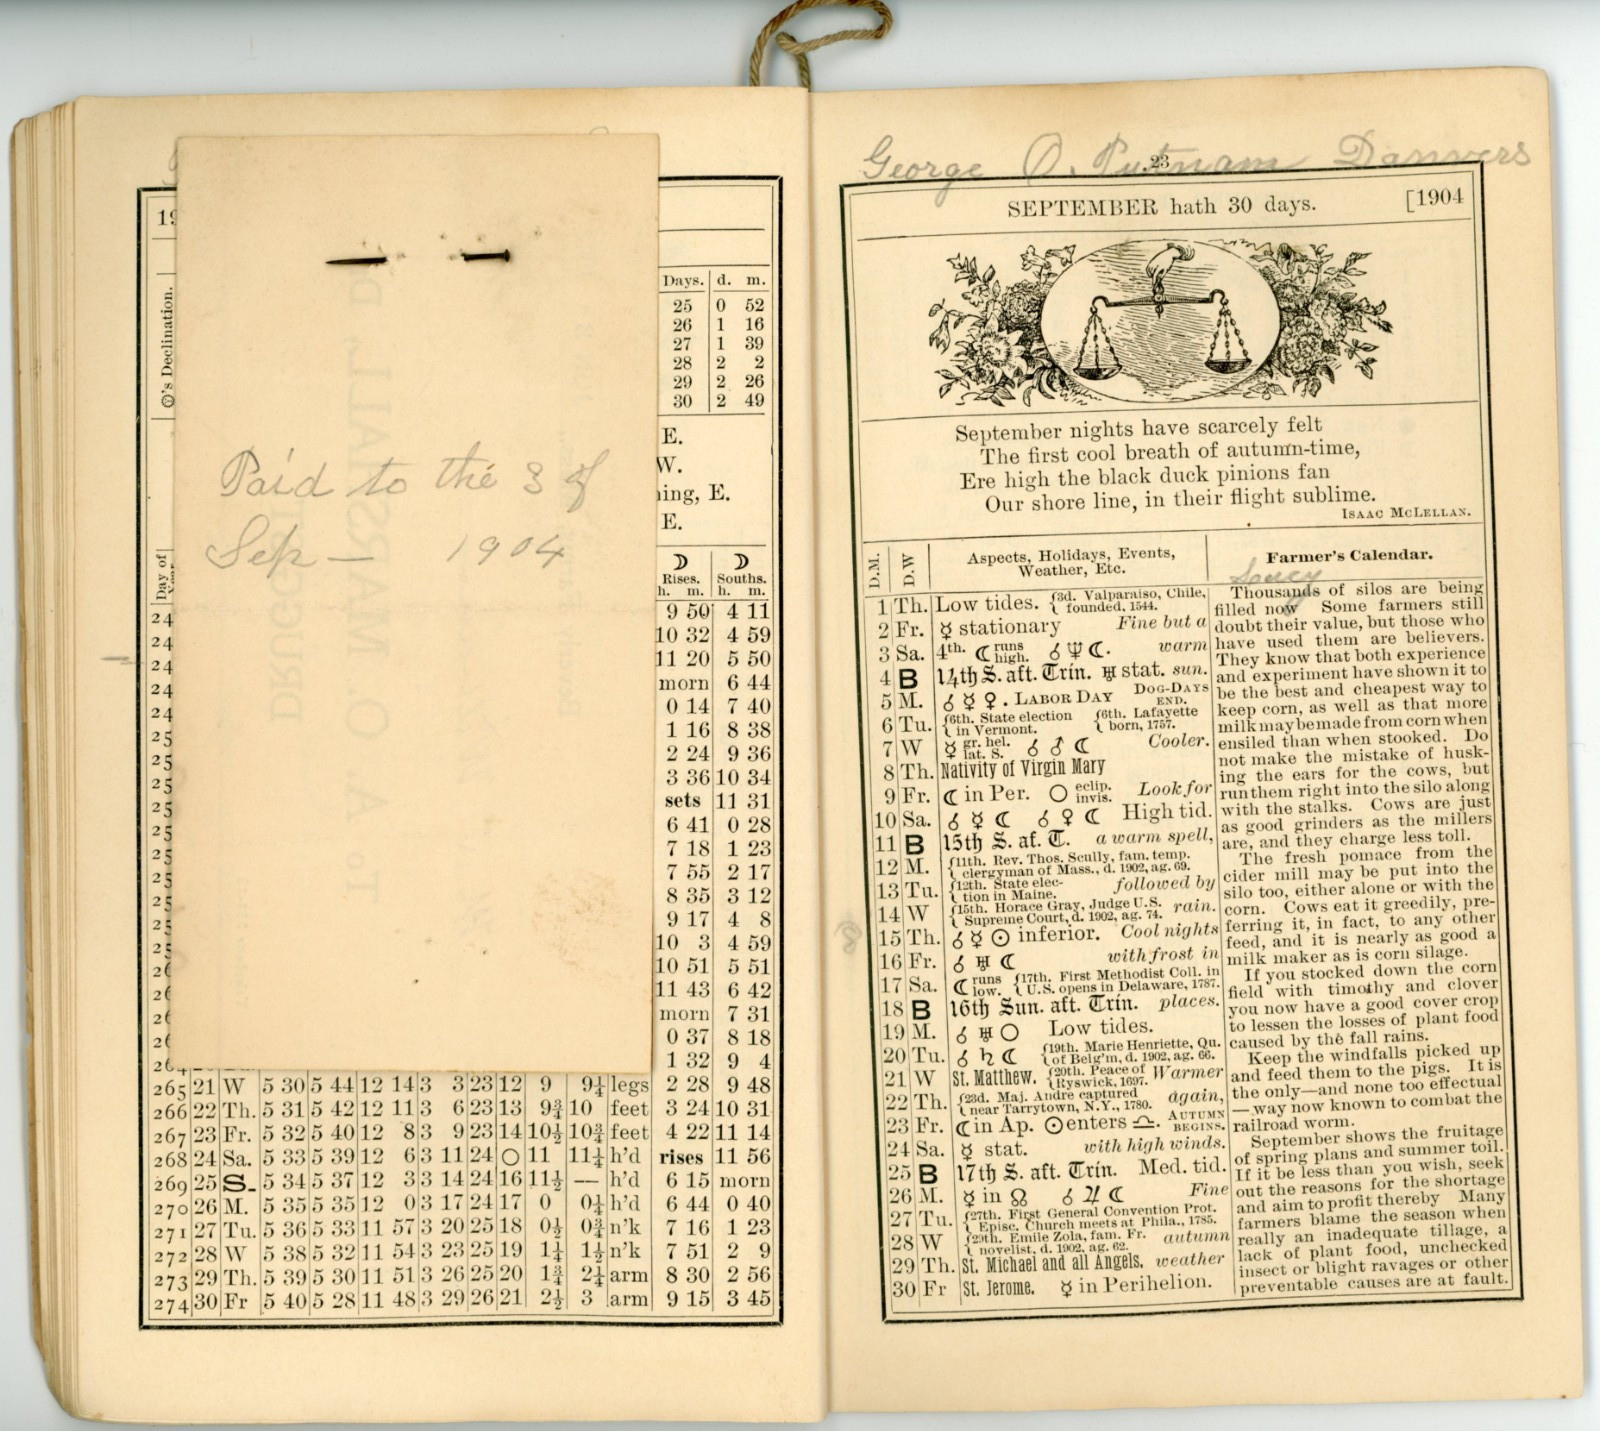 19
Days. d. m.
25 0 52
26 1 16
27 1 39
28 2 2
29 2 26
30 2 49
☉'s Declination.
E.
W.
ing, E.
E.
Paid to the 3 of
Sep — 1904
Day of
☽ Rises. h. m. ☽ Souths. h. m.
24 9 50 4 11
24 10 32 4 59
24 11 20 5 50
24 morn 6 44
24 0 14 7 40
25 1 16 8 38
25 2 24 9 36
25 3 36 10 34
25 sets 11 31
25 6 41 0 28
25 7 18 1 23
25 7 55 2 17
25 8 35 3 12
25 9 17 4 8
25 10 3 4 59
26 10 51 5 51
26 11 43 6 42
26 morn 7 31
26 0 37 8 18
264 1 32 9 4
265 21 W 5 30 5 44 12 14 3 3 23 12 9 9¼ legs 2 28 9 48
266 22 Th. 5 31 5 42 12 11 3 6 23 13 9¾ 10 feet 3 24 10 31
267 23 Fr. 5 32 5 40 12 8 3 9 23 14 10½ 10¾ feet 4 22 11 14
268 24 Sa. 5 33 5 39 12 6 3 11 24 ○ 11 11¼ h'd rises 11 56
269 25 S. 5 34 5 37 12 3 3 14 24 16 11½ — h'd 6 15 morn
270 26 M. 5 35 5 35 12 0 3 17 24 17 0 0¼ h'd 6 44 0 40
271 27 Tu. 5 36 5 33 11 57 3 20 25 18 0½ 0¾ n'k 7 16 1 23
272 28 W 5 38 5 32 11 54 3 23 25 19 1¼ 1½ n'k 7 51 2 9
273 29 Th. 5 39 5 30 11 51 3 26 25 20 1¾ 2¼ arm 8 30 2 56
274 30 Fr 5 40 5 28 11 48 3 29 26 21 2½ 3 arm 9 15 3 45
George O. Putnam Danvers
23
SEPTEMBER hath 30 days. [1904
September nights have scarcely felt
The first cool breath of autumn-time,
Ere high the black duck pinions fan
Our shore line, in their flight sublime.
ISAAC MCLELLAN.
D.M. D.W Aspects, Holidays, Events,
Weather, Etc.
1 Th. Low tides. {3d. Valparaiso, Chile, founded, 1544.
2 Fr. ☿ stationary Fine but a
3 Sa. 4th. ☾ runs high. ☌ ♆ ☾. warm
4 B 14th S. aft. Trin. ♅ stat. sun.
5 M. ☌ ☿ ♀. LABOR DAY DOG-DAYS END.
6 Tu. {6th. State election in Vermont. {6th. Lafayette born, 1757.
7 W ☿ gr. hel. lat. S. ☌ ♂ ☾ Cooler.
8 Th. Nativity of Virgin Mary
9 Fr. ☾ in Per. ○ eclip. invis. Look for
10 Sa. ☌ ☿ ☾ ☌ ♀ ☾ High tid.
11 B 15th S. af. T. a warm spell,
12 M. {11th. Rev. Thos. Scully, fam. temp. clergyman of Mass., d. 1902, ag. 69.
13 Tu. {12th. State election in Maine. followed by
14 W {15th. Horace Gray, Judge U.S. Supreme Court, d. 1902, ag. 74. rain.
15 Th. ☌ ☿ ☉ inferior. Cool nights
16 Fr. ☌ ♅ ☾ with frost in
17 Sa. ☾ runs low. {17th. First Methodist Coll. in U.S. opens in Delaware, 1787.
18 B 16th Sun. aft. Trin. places.
19 M. ☌ ♅ ○ Low tides.
20 Tu. ☌ ♄ ☾ {19th. Marie Henriette, Qu. of Belg'm, d. 1902, ag. 66.
21 W St. Matthew. {20th. Peace of Ryswick, 1697. Warmer
22 Th. {23d. Maj. Andre captured near Tarrytown, N.Y., 1780. again,
23 Fr. ☾ in Ap. ☉ enters ♎. AUTUMN BEGINS.
24 Sa. ☿ stat. with high winds.
25 B 17th S. aft. Trin. Med. tid.
26 M. ☿ in ☊ ☌ ♃ ☾ Fine
27 Tu. {27th. First General Convention Prot. Episc. Church meets at Phila., 1785.
28 W {29th. Emile Zola, fam. Fr. novelist, d. 1902, ag. 62. autumn
29 Th. St. Michael and all Angels. weather
30 Fr St. Jerome. ☿ in Perihelion.
Farmer's Calendar.
Thousands of silos are being
filled now Some farmers still
doubt their value, but those who
have used them are believers.
They know that both experience
and experiment have shown it to
be the best and cheapest way to
keep corn, as well as that more
milk may be made from corn when
ensiled than when stooked. Do
not make the mistake of husk-
ing the ears for the cows, but
run them right into the silo along
with the stalks. Cows are just
as good grinders as the millers
are, and they charge less toll.
The fresh pomace from the
cider mill may be put into the
silo too, either alone or with the
corn. Cows eat it greedily, pre-
ferring it, in fact, to any other
feed, and it is nearly as good a
milk maker as is corn silage.
If you stocked down the corn
field with timothy and clover
you now have a good cover crop
to lessen the losses of plant food
caused by the fall rains.
Keep the windfalls picked up
and feed them to the pigs. It is
the only—and none too effectual
—way now known to combat the
railroad worm.
September shows the fruitage
of spring plans and summer toil.
If it be less than you wish, seek
out the reasons for the shortage
and aim to profit thereby Many
farmers blame the season when
really an inadequate tillage, a
lack of plant food, unchecked
insect or blight ravages or other
preventable causes are at fault.